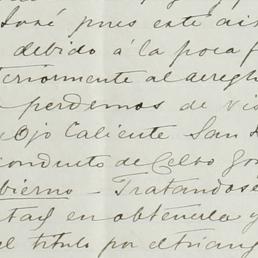 José pues este ais
debido á la poca f
teriormente al arregl
perdemos de vis
Ojo Caliente San
conducto de Celso Gon
bierno - Tratandose
en obtenerla y
el titulo por el triang